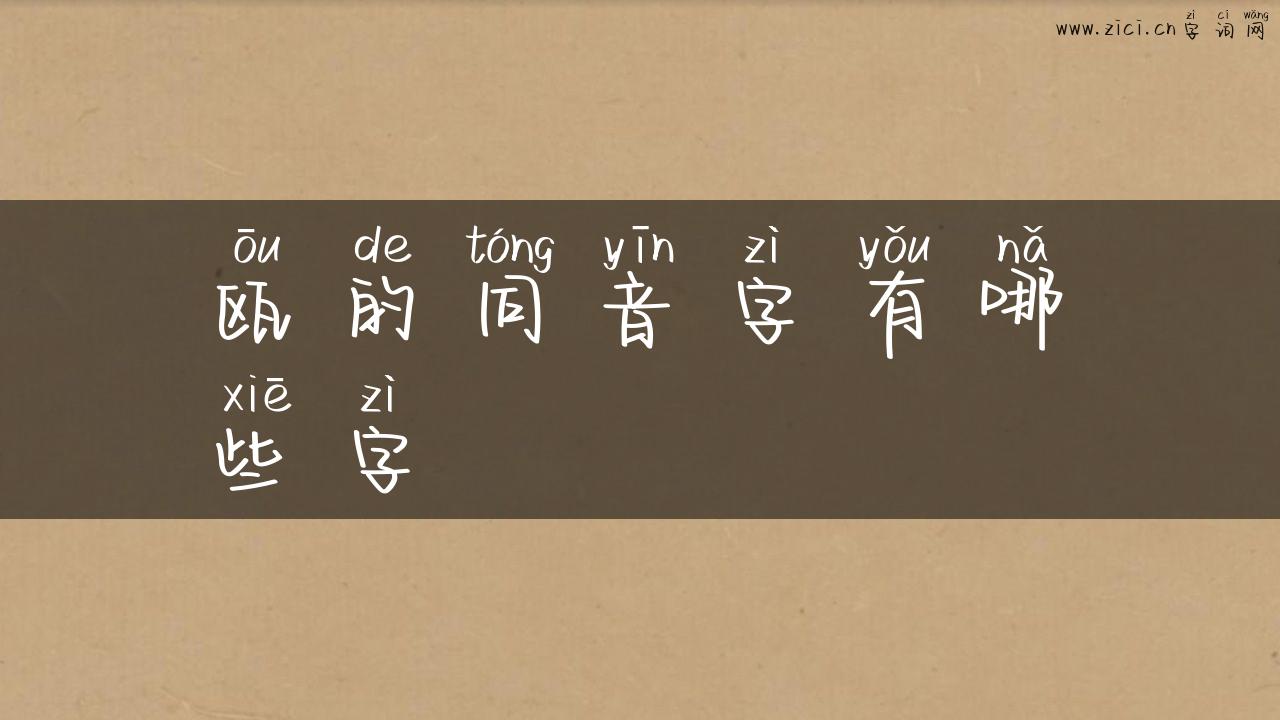 zì cí wǎng
www.zici.cn 字词网
ōu de tóng yīn zì yǒu nǎ
瓯的同音字有哪
xiē zì
些字